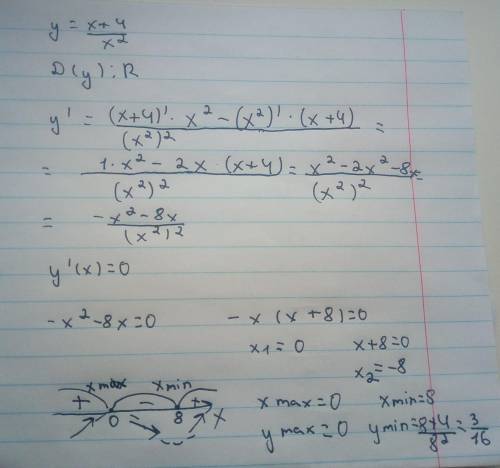 y = x+4 / x²
D(y): R
y' = (x+4)' · x² − (x²)' · (x+4) / (x²)² =
= 1 · x² − 2x · (x+4) / (x²)² = x² − 2x² − 8x / (x²)² =
= −x² − 8x / (x²)²
y'(x) = 0
−x² − 8x = 0 − x (x + 8) = 0
x₁ = 0 x + 8 = 0
x₂ = −8
x max x min
+ − +
0 8 x
x max = 0 x min = 8
y max = 0 y min = 8+4 / 8² = 3 / 16